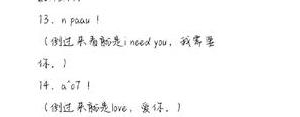 13. n paau !
(倒过来看就是i need you，我需要
你。)
14. a^o7 !
(倒过来就是love，爱你。)